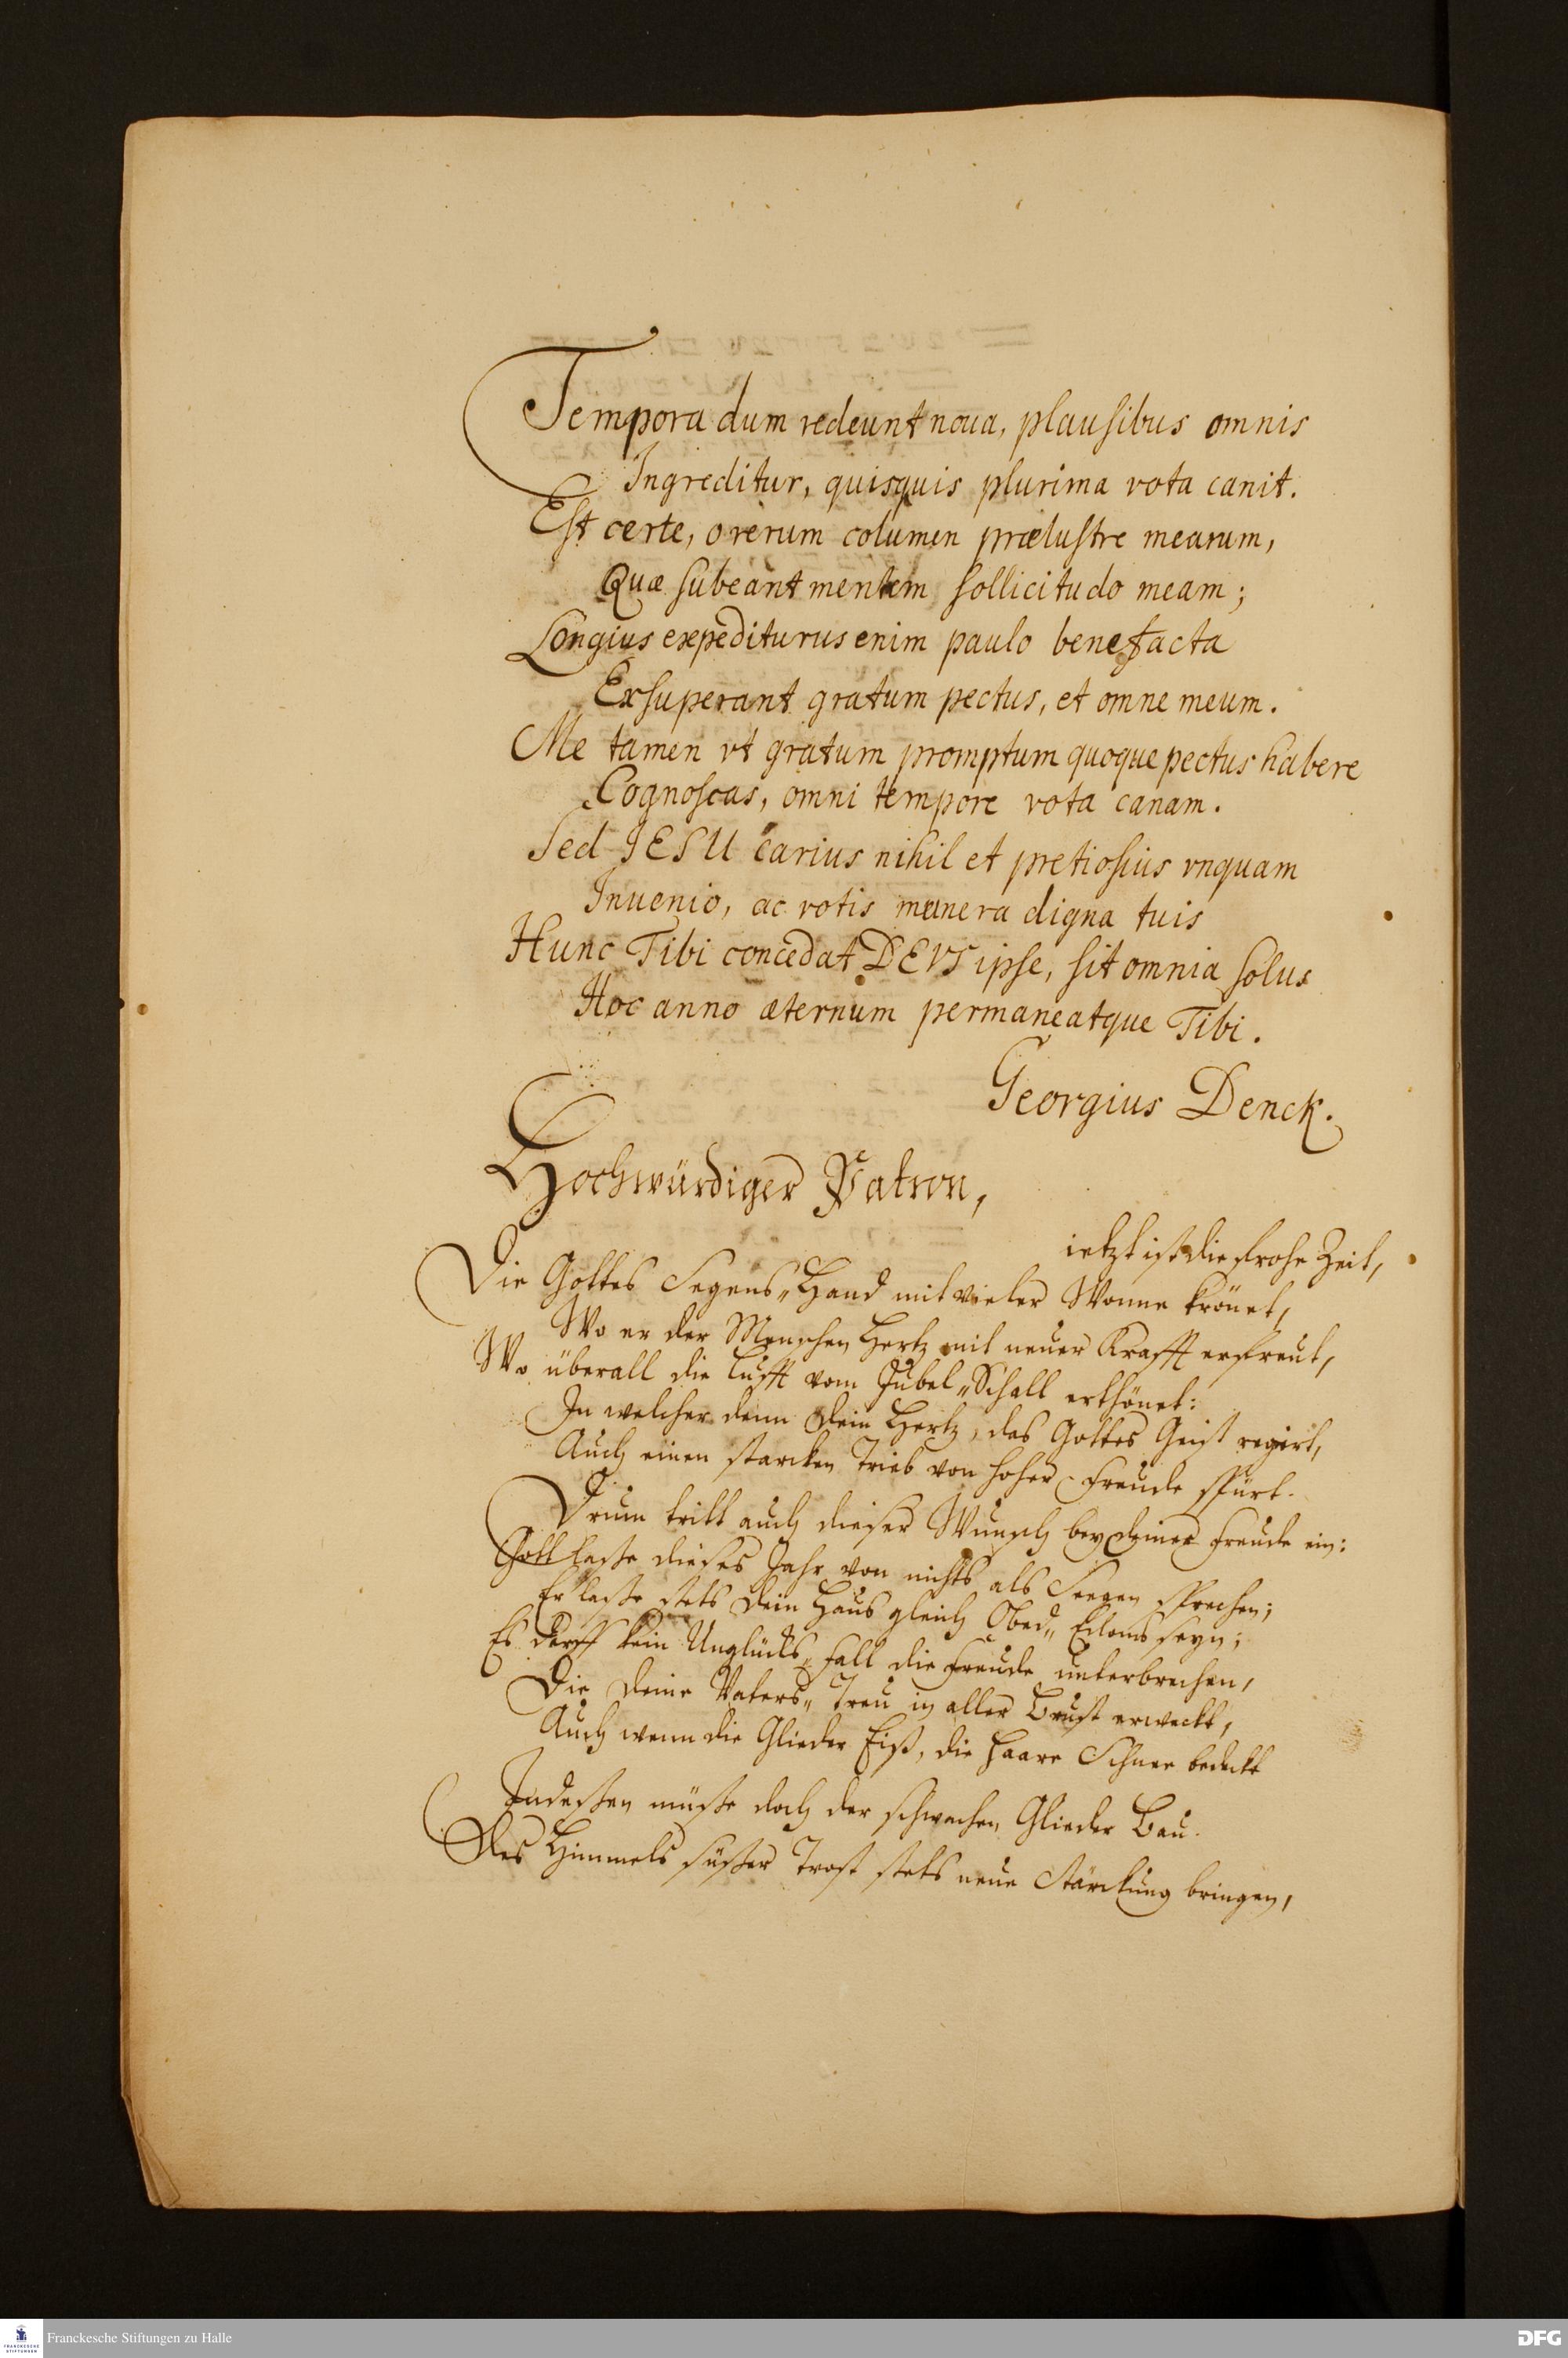 Tempora dum redeunt noua, plausibus omnis
Ingreditur, quisquis plurima vota canit.
Est certe, o rerum columen prælustre mearum,
Quæ subeant mentem sollicitudo meam;
Longius expediturus enim paulo benefacta
Exsuperant gratum pectus, et omne meum.
Me tamen vt gratum promptum quoque pectus habere
Cognoscas, omni tempore vota canam.
Sed IESU carius nihil et pretiosius vnquam
Inuenio, ac votis munera digna tuis
Hunc Tibi concedat DEVS ipse, sit omnia solus
Hoc anno æternum permaneatque Tibi.
Georgius Denck.
Hochwürdiger Patron,
ietzt ist die frohe Zeit,
Die Gottes Segens„Hand mit vieler Wonne krönet,
Wo er der Menschen Hertz mit neuer Krafft erfreut,
Wo überall die Lufft vom Jubel„Schall erthönet:
In welcher denn Dein Hertz, das Gottes Geist regirt,
Auch einen starcken Trieb von hoher Freude spürt.
Drum tritt auch dieser Wunsch bey Deiner Freude ein:
Gott laße dieses Jahr von nichts als Seegen sprechen;
Er laße stets Dein Haus gleich Obed„Edoms seyn;
Es derff kein Unglücks„Fall die Freude unterbrechen,
Die Deine Vaters„Treu in aller Brust erweckt,
Auch wenn die Glieder Eiß, die Haare Schnee bedeckt
Indeßen müße doch der schwachen Glieder Bau
Des Himmels süßer Trost stets neue Stärckung bringen,
Franckesche Stiftungen zu Halle
DFG